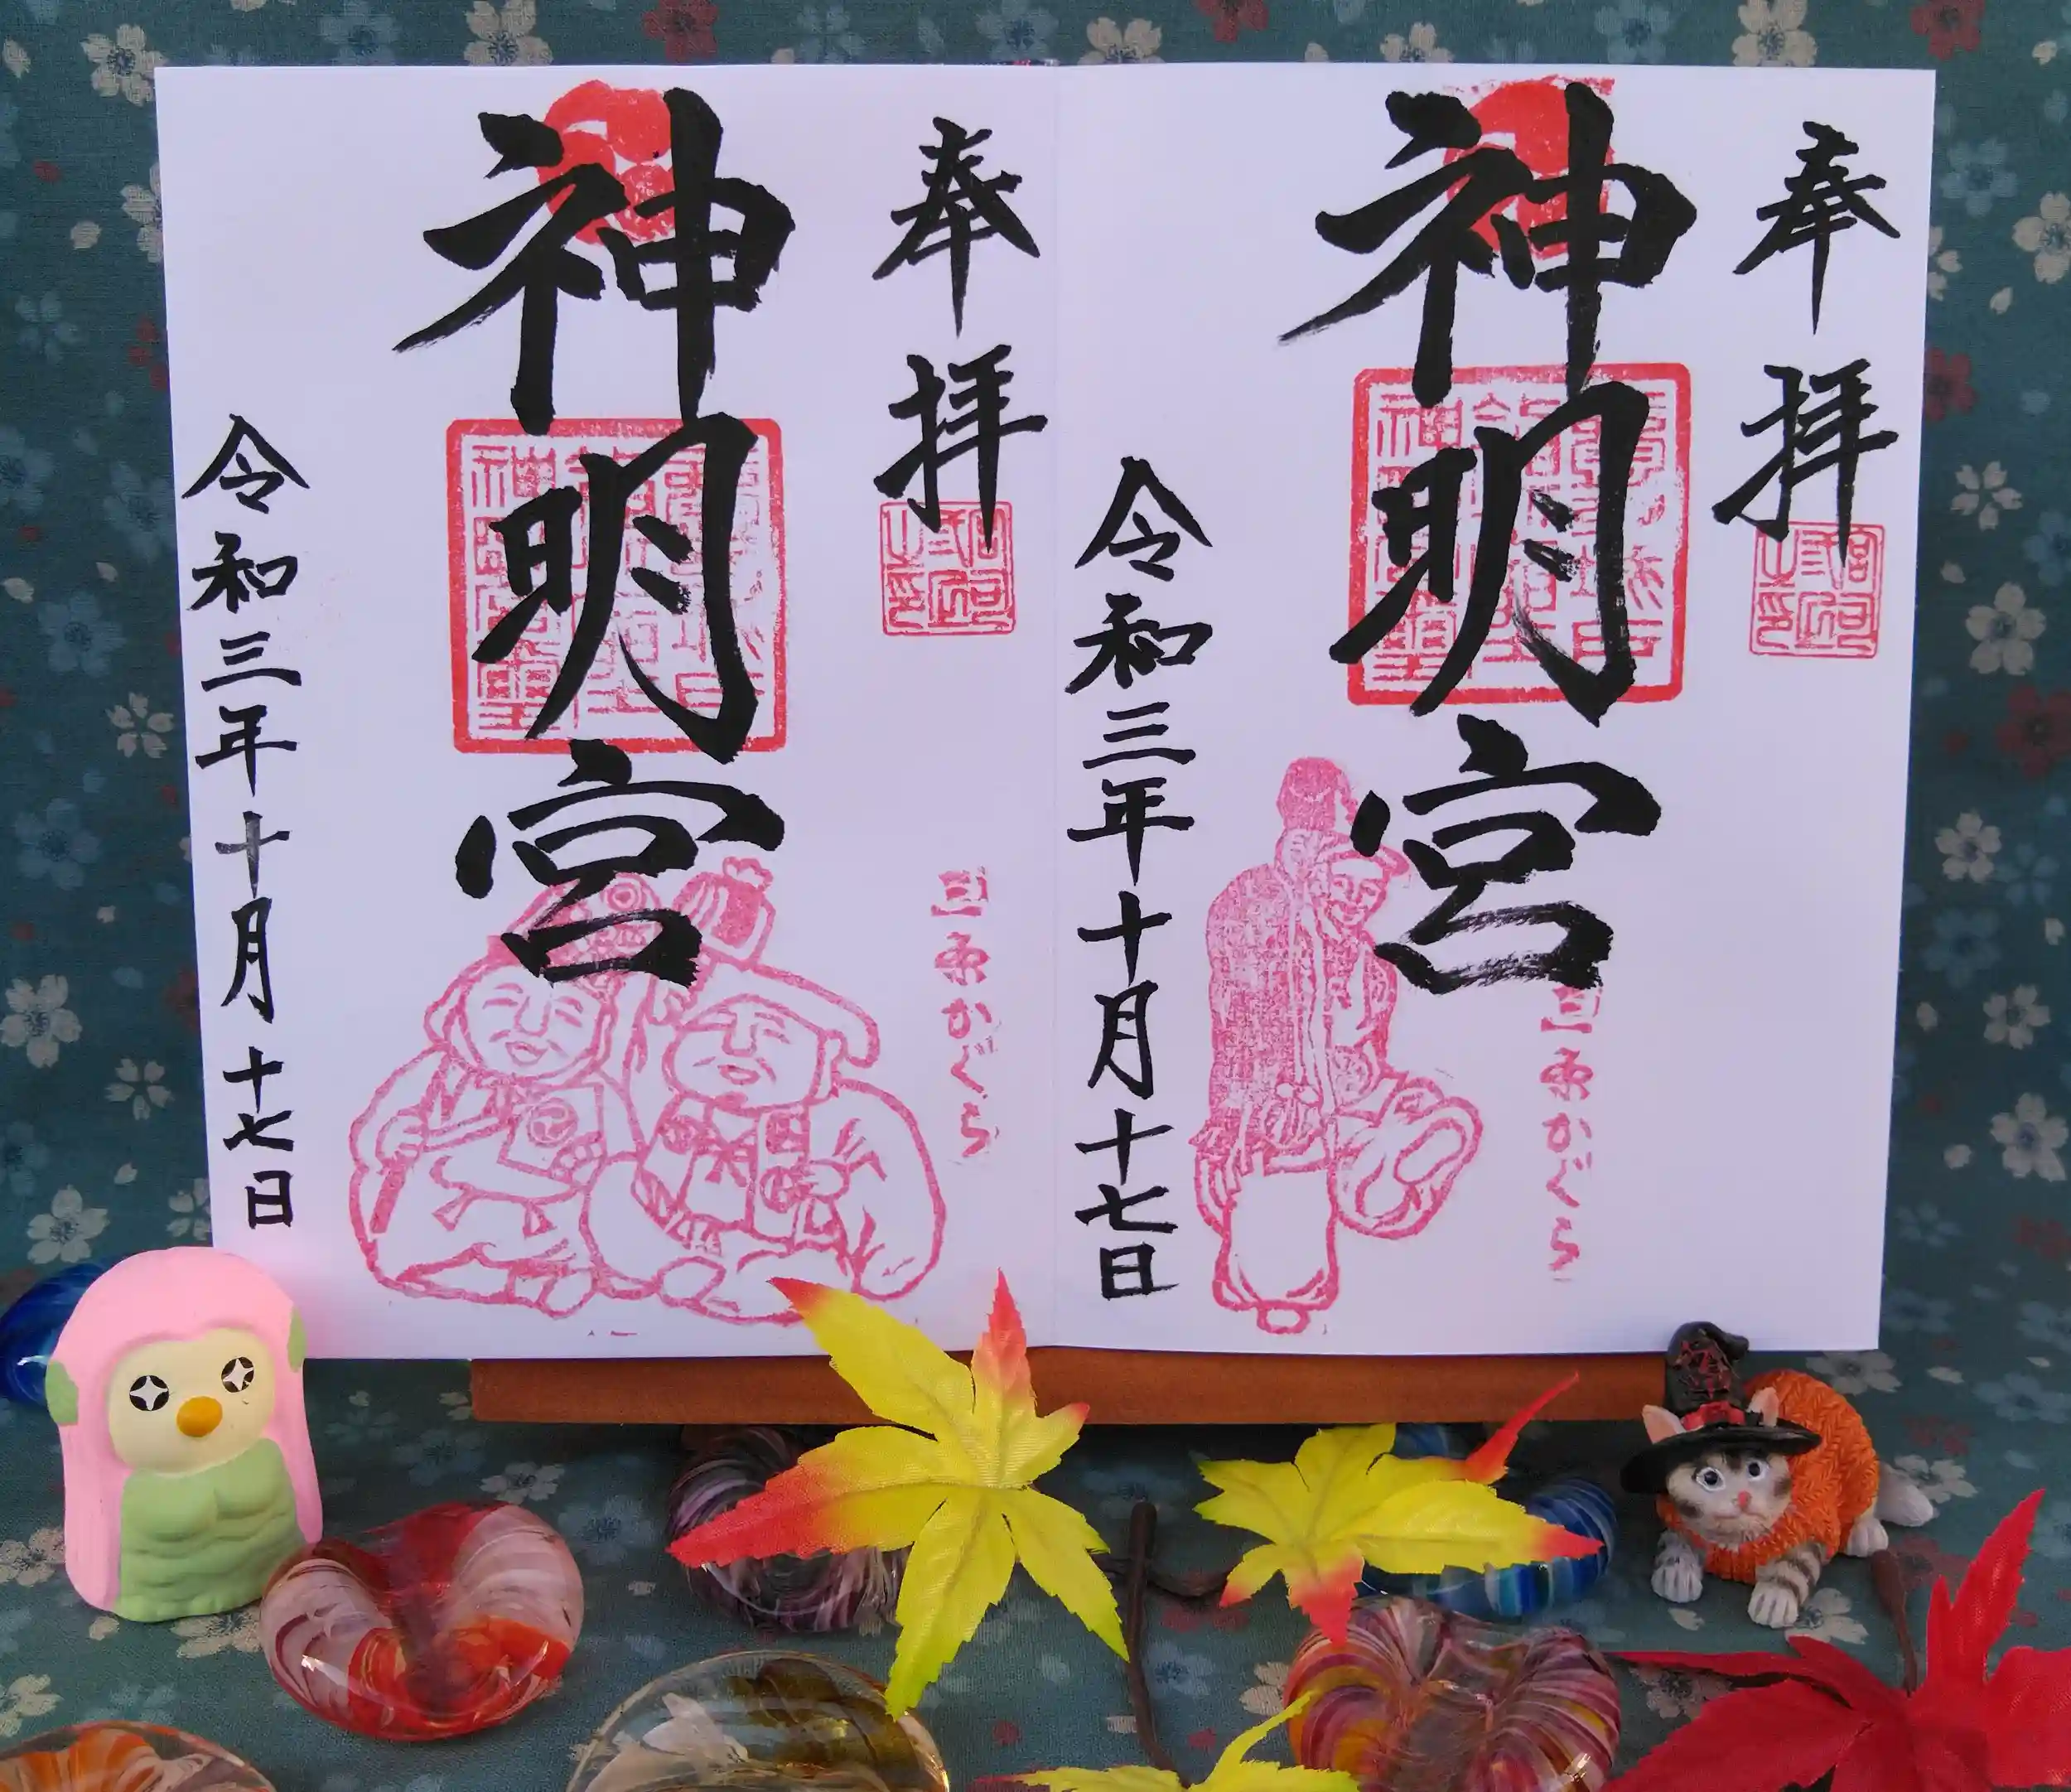 奉拝
神明宮
令和三年十月十七日
かぐら
奉拝
神明宮
令和三年十月十七日
かぐら